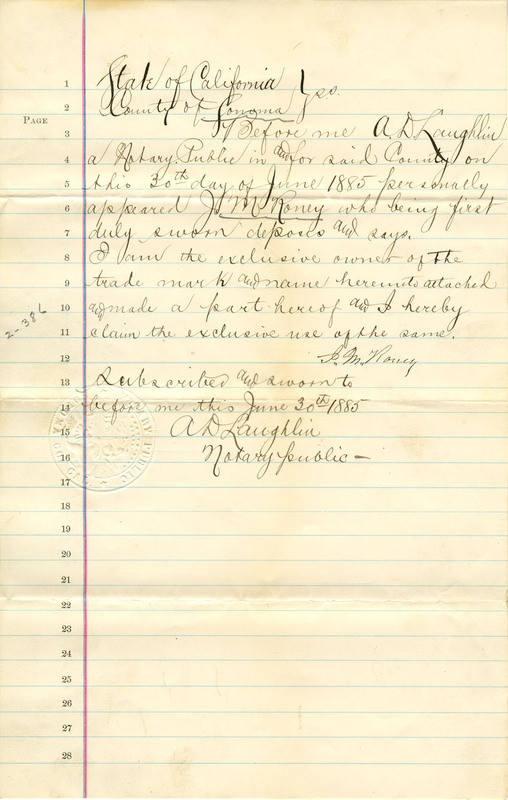 1 State of California
2 County of Sonoma } ss.
PAGE
3 Before me A. D. Laughlin
4 a Notary Public in and for said County on
5 this 30th day of June 1885 personally
6 appeared J. M. Roney who being first
7 duly sworn deposes and says.
8 I am the exclusive owner of the
9 trade mark and name hereunto attached
10 and made a part hereof and I hereby
11 claim the exclusive use of the same.
2-386
12 J. M. Roney
13 Subscribed and sworn to
14 before me this June 30th 1885
15 A D Laughlin
16 Notary public —
17
18
19
20
21
22
23
24
25
26
27
28